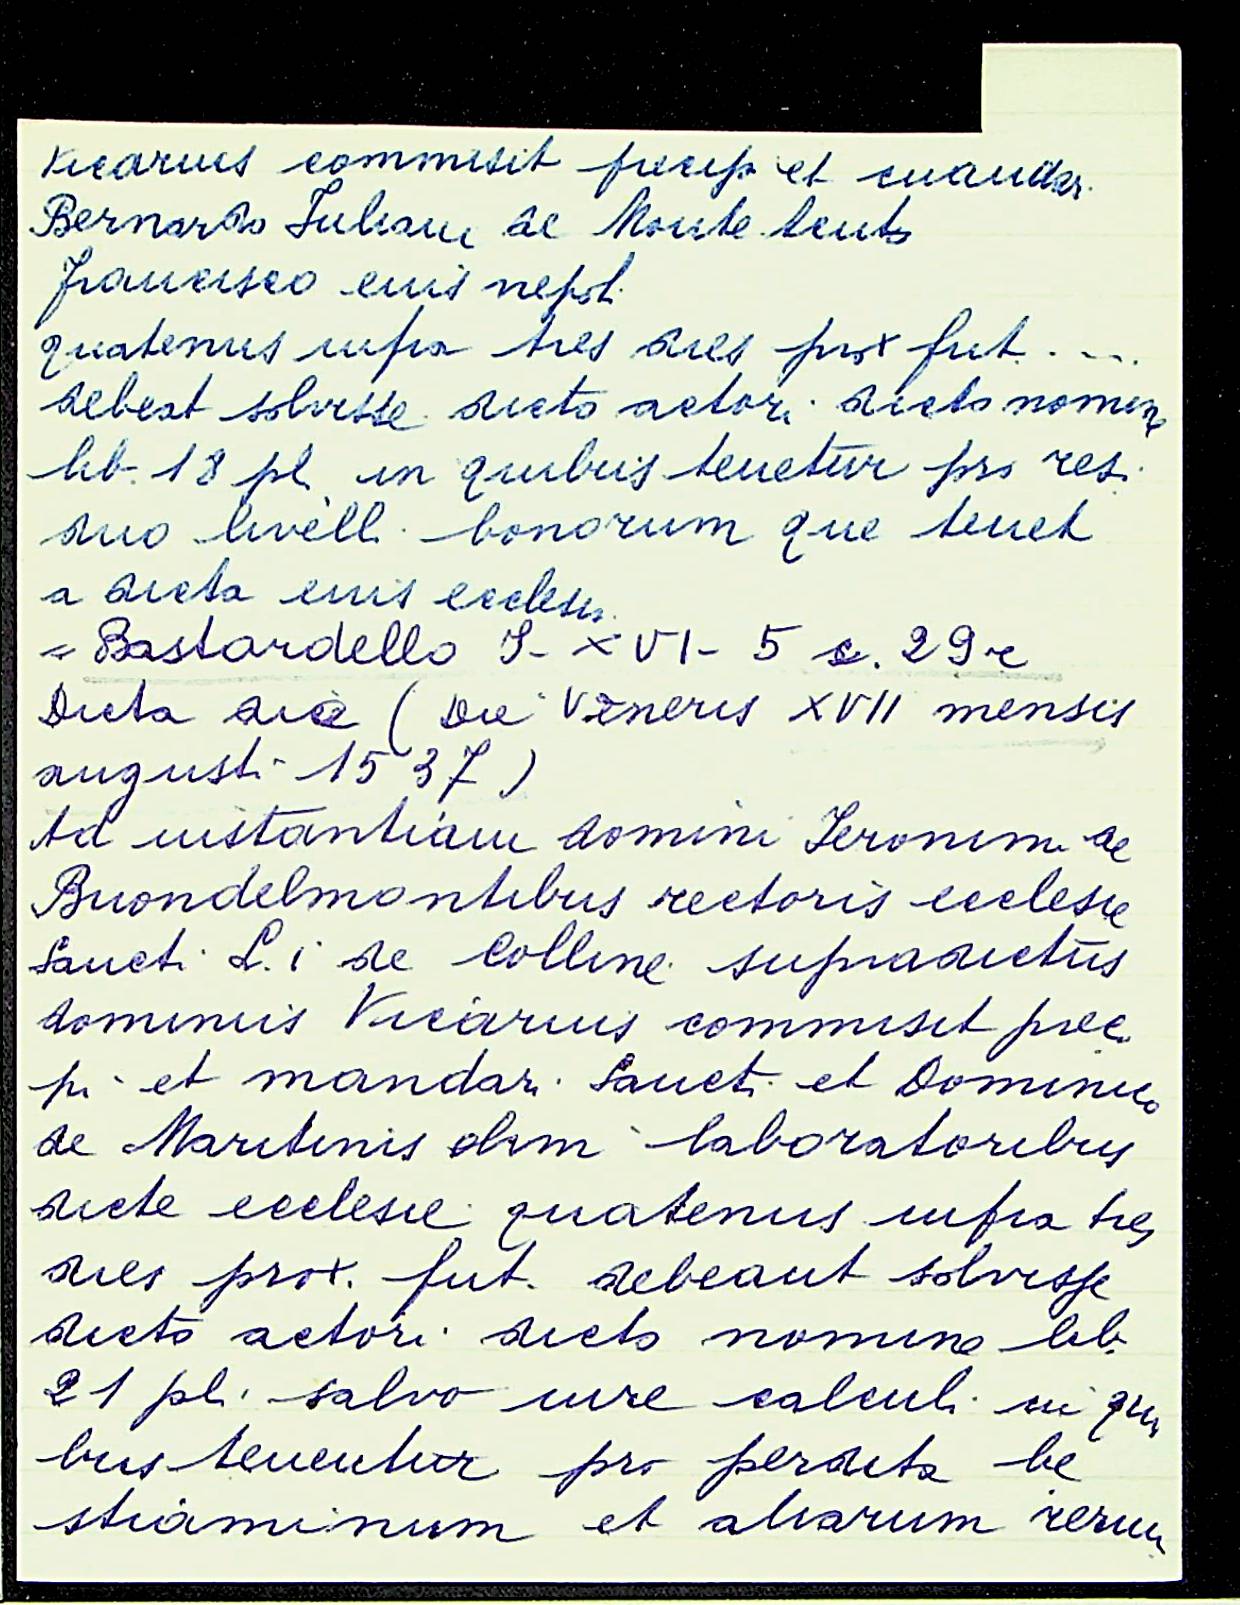 Vicarius commisit precip et mandar.
Bernardo Iuliani de Monte
Francisco eius nepoti
quatenus infra tres dies prox fut. ....
debeat solvisse dicto actori dicto nomine
lib. 18 pl. in quibus tenetur pro resi
duo livell. bonorum que tenet
a dicta eius ecclesia
= Bastardello I- XVI- 5 c. 29r
Dicta die (Die Veneris XVII mensis
augusti 1537)
Ad instantiam domini Ieronimi de
Buondelmontibus rectoris ecclesie
Sancti L.i de Colline supradictus
dominus Vicarius commisit preci
pi et mandari Sancti et Dominico
de Maritinis olim laboratoribus
dicte ecclesie quatenus infra tres
dies prox. fut. debeant solvisse
dicto actori dicto nomine lib.
21 pl. salvo iure calculi in qui
bus tenentur pro perdita be
stiaminum et aliarum rerum